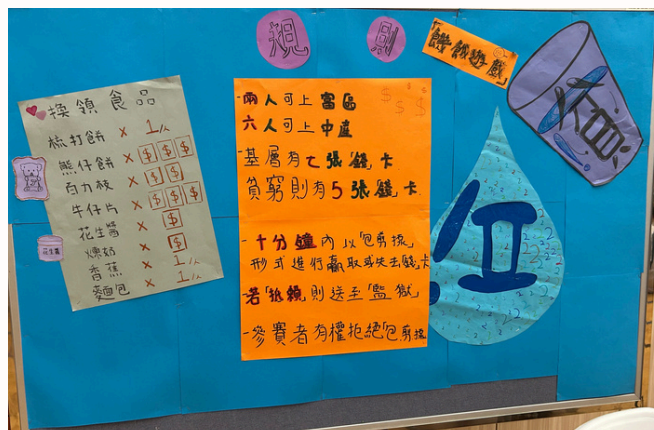 規則
「饑餓遊戲」
換領食品
梳打餅 x 1/人
熊仔餅 x $ $ $
百力枝 x $ $
牛仔片 x $ $ $
花生醬 x $
煉奶 x $
香蕉 x 1/人
麵包 x 1/人
花生醬
$ $ $ $
-兩人可上富區
六人可上中產
-基層有七張「錢」卡
貧窮則有5張「錢」卡
-十分鐘內以「包剪揼」
形式進行贏取或失去錢卡
-若「抵賴」則送至「監獄」
-參賽者有權拒絕「包剪揼」